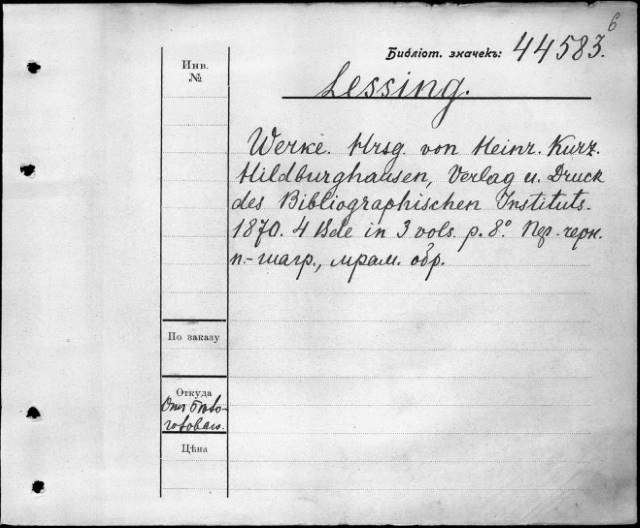 6
Библіот. значекъ: 44583.
Инв.
№
Lessing.
Werke. Hrsg. von Heinr. Kurz.
Hildburghausen, Verlag u. Druck
des Bibliographischen Instituts.
1870. 4 Bde in 3 vols. p. 8º. Пер. черн.
п.-шагр., мрам. обр.
По заказу
Откуда
Цѣна